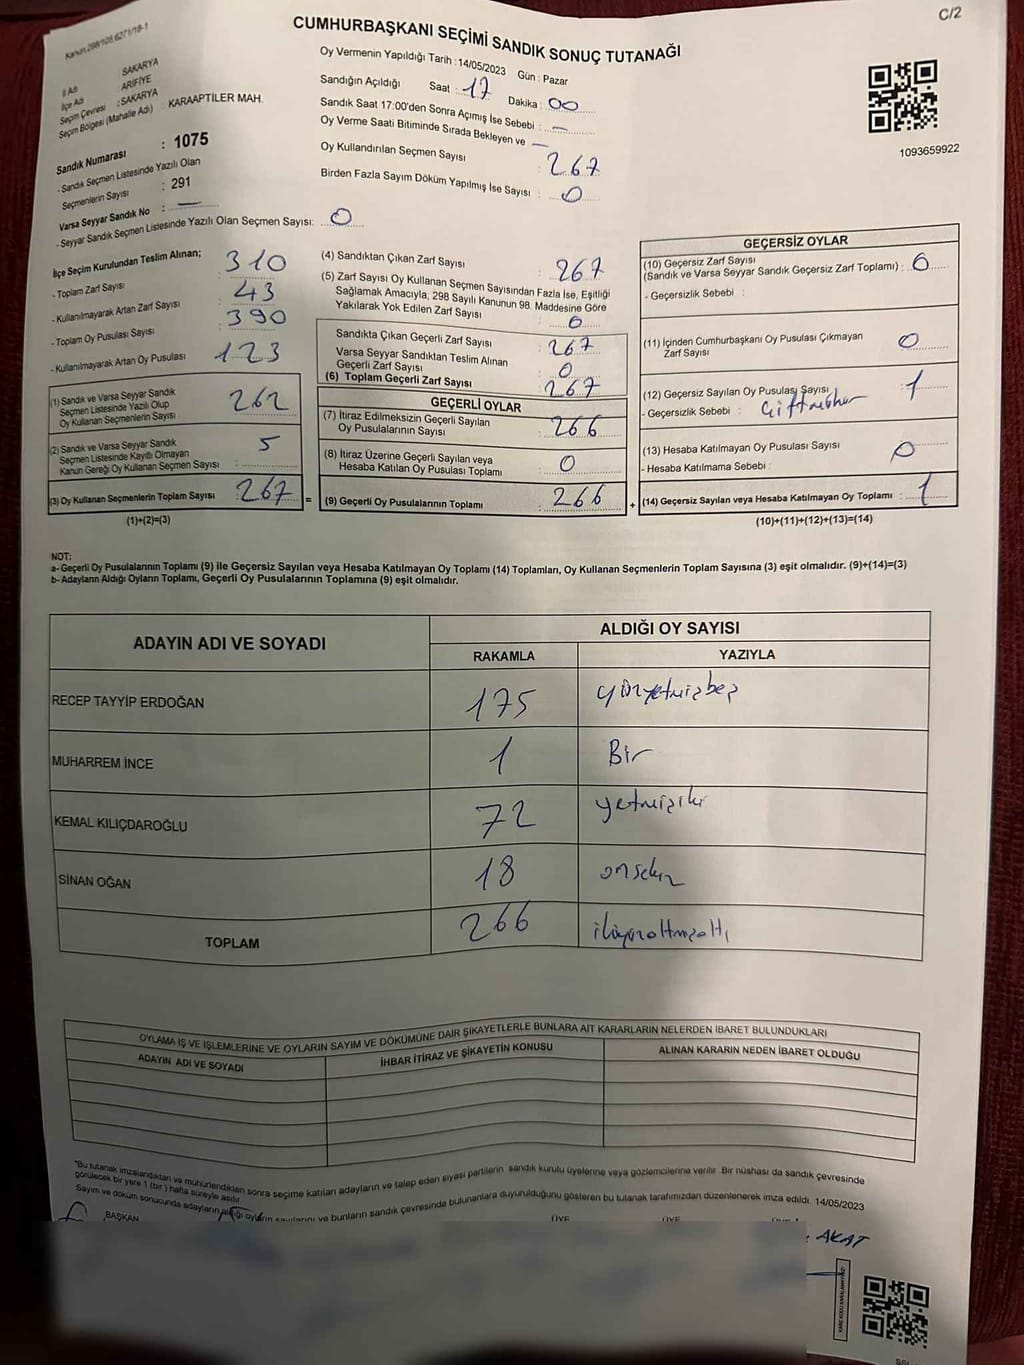 C/2
Kanun.298/105,6271/19-1
CUMHURBAŞKANI SEÇİMİ SANDIK SONUÇ TUTANAĞI
İl Adı SAKARYA
İlçe Adı : ARİFİYE
Seçim Çevresi : SAKARYA
Seçim Bölgesi (Mahalle Adı) KARAAPTİLER MAH.
Sandık Numarası : 1075
- Sandık Seçmen Listesinde Yazılı Olan
Seçmenlerin Sayısı : 291
Varsa Seyyar Sandık No : —
- Seyyar Sandık Seçmen Listesinde Yazılı Olan Seçmen Sayısı: 0
Oy Vermenin Yapıldığı Tarih : 14/05/2023 Gün : Pazar
Sandığın Açıldığı Saat : 17 Dakika : 00
Sandık Saat 17:00'den Sonra Açımış İse Sebebi : —
Oy Verme Saati Bitiminde Sırada Bekleyen ve —
Oy Kullandırılan Seçmen Sayısı : 267
Birden Fazla Sayım Döküm Yapılmış İse Sayısı : 0
1093659922
İlçe Seçim Kurulundan Teslim Alınan;
- Toplam Zarf Sayısı : 310
- Kullanılmayarak Artan Zarf Sayısı : 43
- Toplam Oy Pusulası Sayısı : 390
- Kullanılmayarak Artan Oy Pusulası : 123
(1) Sandık ve Varsa Seyyar Sandık
Seçmen Listesinde Yazılı Olup
Oy Kullanan Seçmenlerin Sayısı : 262
(2) Sandık ve Varsa Seyyar Sandık
Seçmen Listesinde Kayıtlı Olmayan
Kanun Gereği Oy Kullanan Seçmen Sayısı : 5
(3) Oy Kullanan Seçmenlerin Toplam Sayısı : 267 =
(1)+(2)=(3)
(4) Sandıktan Çıkan Zarf Sayısı : 267
(5) Zarf Sayısı Oy Kullanan Seçmen Sayısından Fazla İse, Eşitliği
Sağlamak Amacıyla, 298 Sayılı Kanunun 98. Maddesine Göre
Yakılarak Yok Edilen Zarf Sayısı : 0
Sandıkta Çıkan Geçerli Zarf Sayısı : 267
Varsa Seyyar Sandıktan Teslim Alınan
Geçerli Zarf Sayısı : 0
(6) Toplam Geçerli Zarf Sayısı : 267
GEÇERLİ OYLAR
(7) İtiraz Edilmeksizin Geçerli Sayılan
Oy Pusulalarının Sayısı : 266
(8) İtiraz Üzerine Geçerli Sayılan veya
Hesaba Katılan Oy Pusulası Toplamı : 0
(9) Geçerli Oy Pusulalarının Toplamı : 266 +
GEÇERSİZ OYLAR
(10) Geçersiz Zarf Sayısı
(Sandık ve Varsa Seyyar Sandık Geçersiz Zarf Toplamı) : 0
- Geçersizlik Sebebi :
(11) İçinden Cumhurbaşkanı Oy Pusulası Çıkmayan
Zarf Sayısı : 0
(12) Geçersiz Sayılan Oy Pusulası Sayısı : 1
- Geçersizlik Sebebi :
(13) Hesaba Katılmayan Oy Pusulası Sayısı : 0
- Hesaba Katılmama Sebebi :
(14) Geçersiz Sayılan veya Hesaba Katılmayan Oy Toplamı : 1
(10)+(11)+(12)+(13)=(14)
NOT:
a- Geçerli Oy Pusulalarının Toplamı (9) ile Geçersiz Sayılan veya Hesaba Katılmayan Oy Toplamı (14) Toplamları, Oy Kullanan Seçmenlerin Toplam Sayısına (3) eşit olmalıdır. (9)+(14)=(3)
b- Adayların Aldığı Oyların Toplamı, Geçerli Oy Pusulalarının Toplamına (9) eşit olmalıdır.
ADAYIN ADI VE SOYADI ALDIĞI OY SAYISI
RAKAMLA YAZIYLA
RECEP TAYYİP ERDOĞAN 175 yüzyetmişbeş
MUHARREM İNCE 1 Bir
KEMAL KILIÇDAROĞLU 72 yetmişiki
SİNAN OĞAN 18 onsekiz
TOPLAM 266 ikiyüzaltmışaltı
OYLAMA İŞ VE İŞLEMLERİNE VE OYLARIN SAYIM VE DÖKÜMÜNE DAİR ŞİKAYETLERLE BUNLARA AİT KARARLARIN NELERDEN İBARET BULUNDUKLARI
ADAYIN ADI VE SOYADI İHBAR İTİRAZ VE ŞİKAYETİN KONUSU ALINAN KARARIN NEDEN İBARET OLDUĞU
"Bu tutanak imzalandıktan ve mühürlendikten sonra seçime katılan adayların ve talep eden siyasi partilerin sandık kurulu üyelerine veya gözlemcilerine verilir .Bir nüshası da sandık çevresinde
görülecek bir yere 1 (bir ) hafta süreyle asılır.
Sayım ve döküm sonucunda adayların aldığı oyların sayılarını ve bunların sandık çevresinde bulunanlara duyurulduğunu gösteren bu tutanak tarafımızdan düzenlenerek imza edildi. 14/05/2023
BAŞKAN ÜYE ÜYE
AKAT